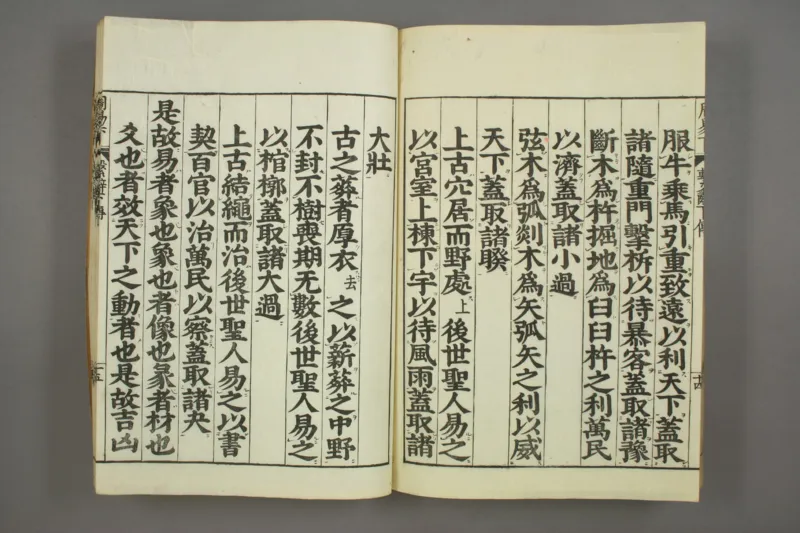 服牛乘馬引重致遠以利天下蓋取
諸隨重門擊柝以待暴客蓋取諸豫
斷木爲杵掘地爲臼臼杵之利萬民
以濟蓋取諸小過
弦木爲弧剡木爲矢弧矢之利以威
天下蓋取諸睽
上古穴居而野處上後世聖人易之
以宮室上棟下宇以待風雨蓋取諸
大壯
古之葬者厚衣去之以薪葬之中野
不封不樹喪期无數後世聖人易之
以棺槨蓋取諸大過
上古結繩而治後世聖人易之以書
契百官以治萬民以察蓋取諸夬
是故易者象也象也者像也彖者材也
爻也者效天下之動者也是故吉凶